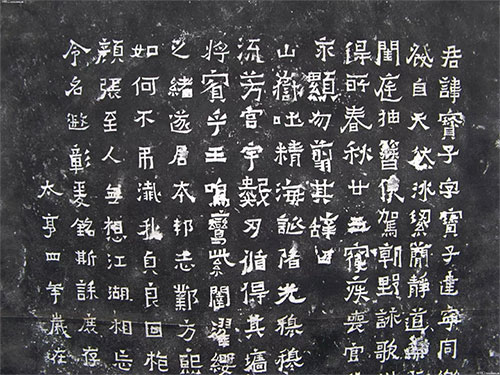 君諱寶子字寶子建寧同樂
發自天然冰絜簡靜道兼
閨庭抽簪俟駕朝野詠歌
得所春秋廿五寑疾喪官
永顯勿翦其辭曰
山嶽吐精海誕陥光穆穆
流芳宮宇數仞循得其墻
將賓乎王鳴鸞紫闥濯纓
之緒遂居本邦志鄴方熙
如何不弔殲我貞良回枹
顏張至人無想江湖相忘
令名遐彰爰銘斯誄庶存
太亨四年歲在